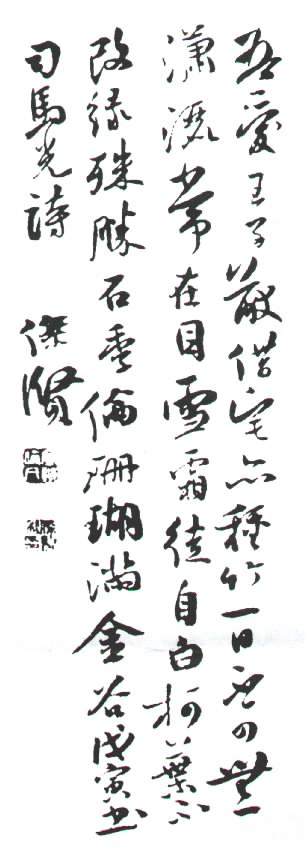 吾愛王子猷借宅亦種竹一日不可無
瀟灑常在目雪霜徒自白柯葉不
改綠殊勝石季倫珊瑚滿金谷戊寅書
司馬光詩 傑賢